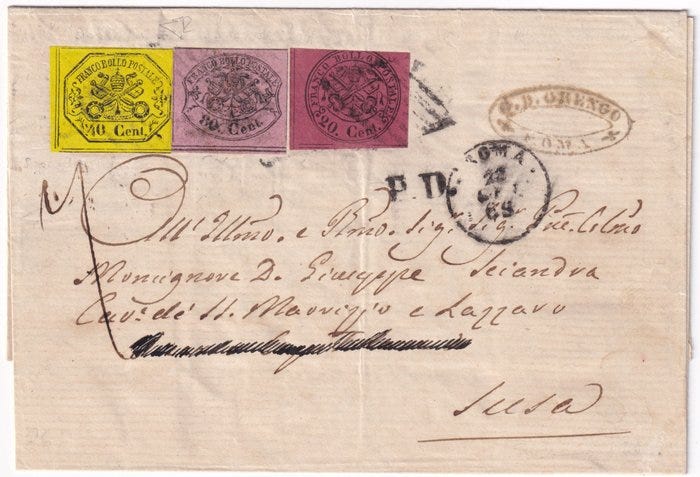 FRANCO BOLLO POSTALE
40 Cent.
FRANCO BOLLO POSTALE
80 Cent.
FRANCO BOLLO POSTALE
20 Cent.
ORENGO
ROMA
P D
ROMA
69
All' Illmo. e Rmo. Sig. Sig.
Monsignore D. Giuseppe Sciandra
Cave. dé SS. Maurizio e Lazzaro
Susa